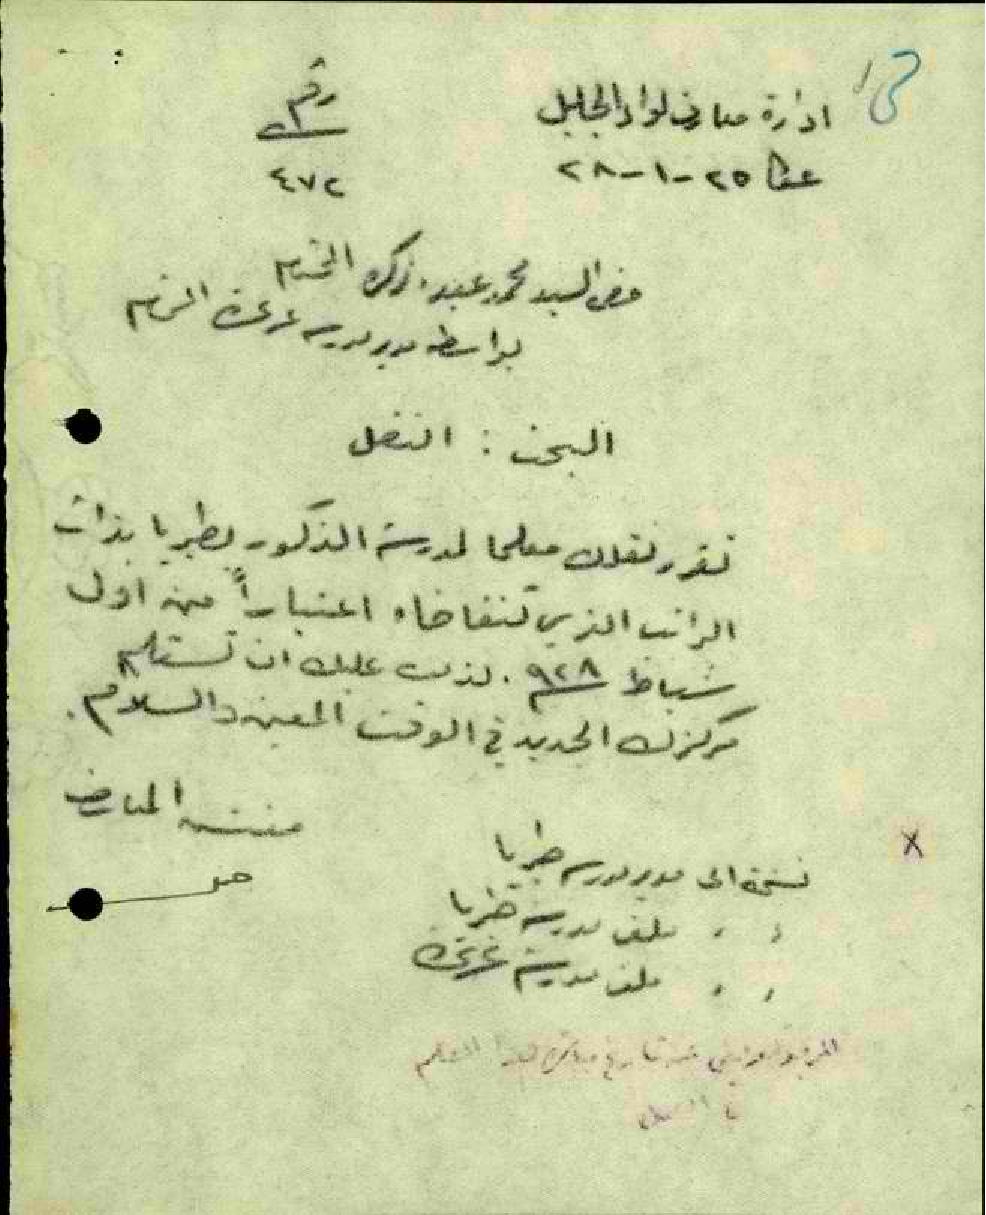 ادارة معارف لواء الجليل
رقم
عكا ٢٥-١-٢٨
٤٧٢
حضرة السيد محمد عبد المحترم
بواسطة مدير مدرسة عرعرة المحترم
البحث : النقل
تقرر نقلك معلما لمدرسة الذكور بطبريا بذات
الراتب الذي تتقاضاه اعتباراً من اول
شباط ٩٢٨ . لذلك عليك ان تستلم
مركزك الجديد في الوقت المعين والسلام .
مفتش المعارف
نسخة الى مدير مدرسة طبريا
〃 〃 ملف مدرسة طبريا
〃 〃 ملف مدرسة عرعرة
عن تاريخ مباشرة هذا المعلم